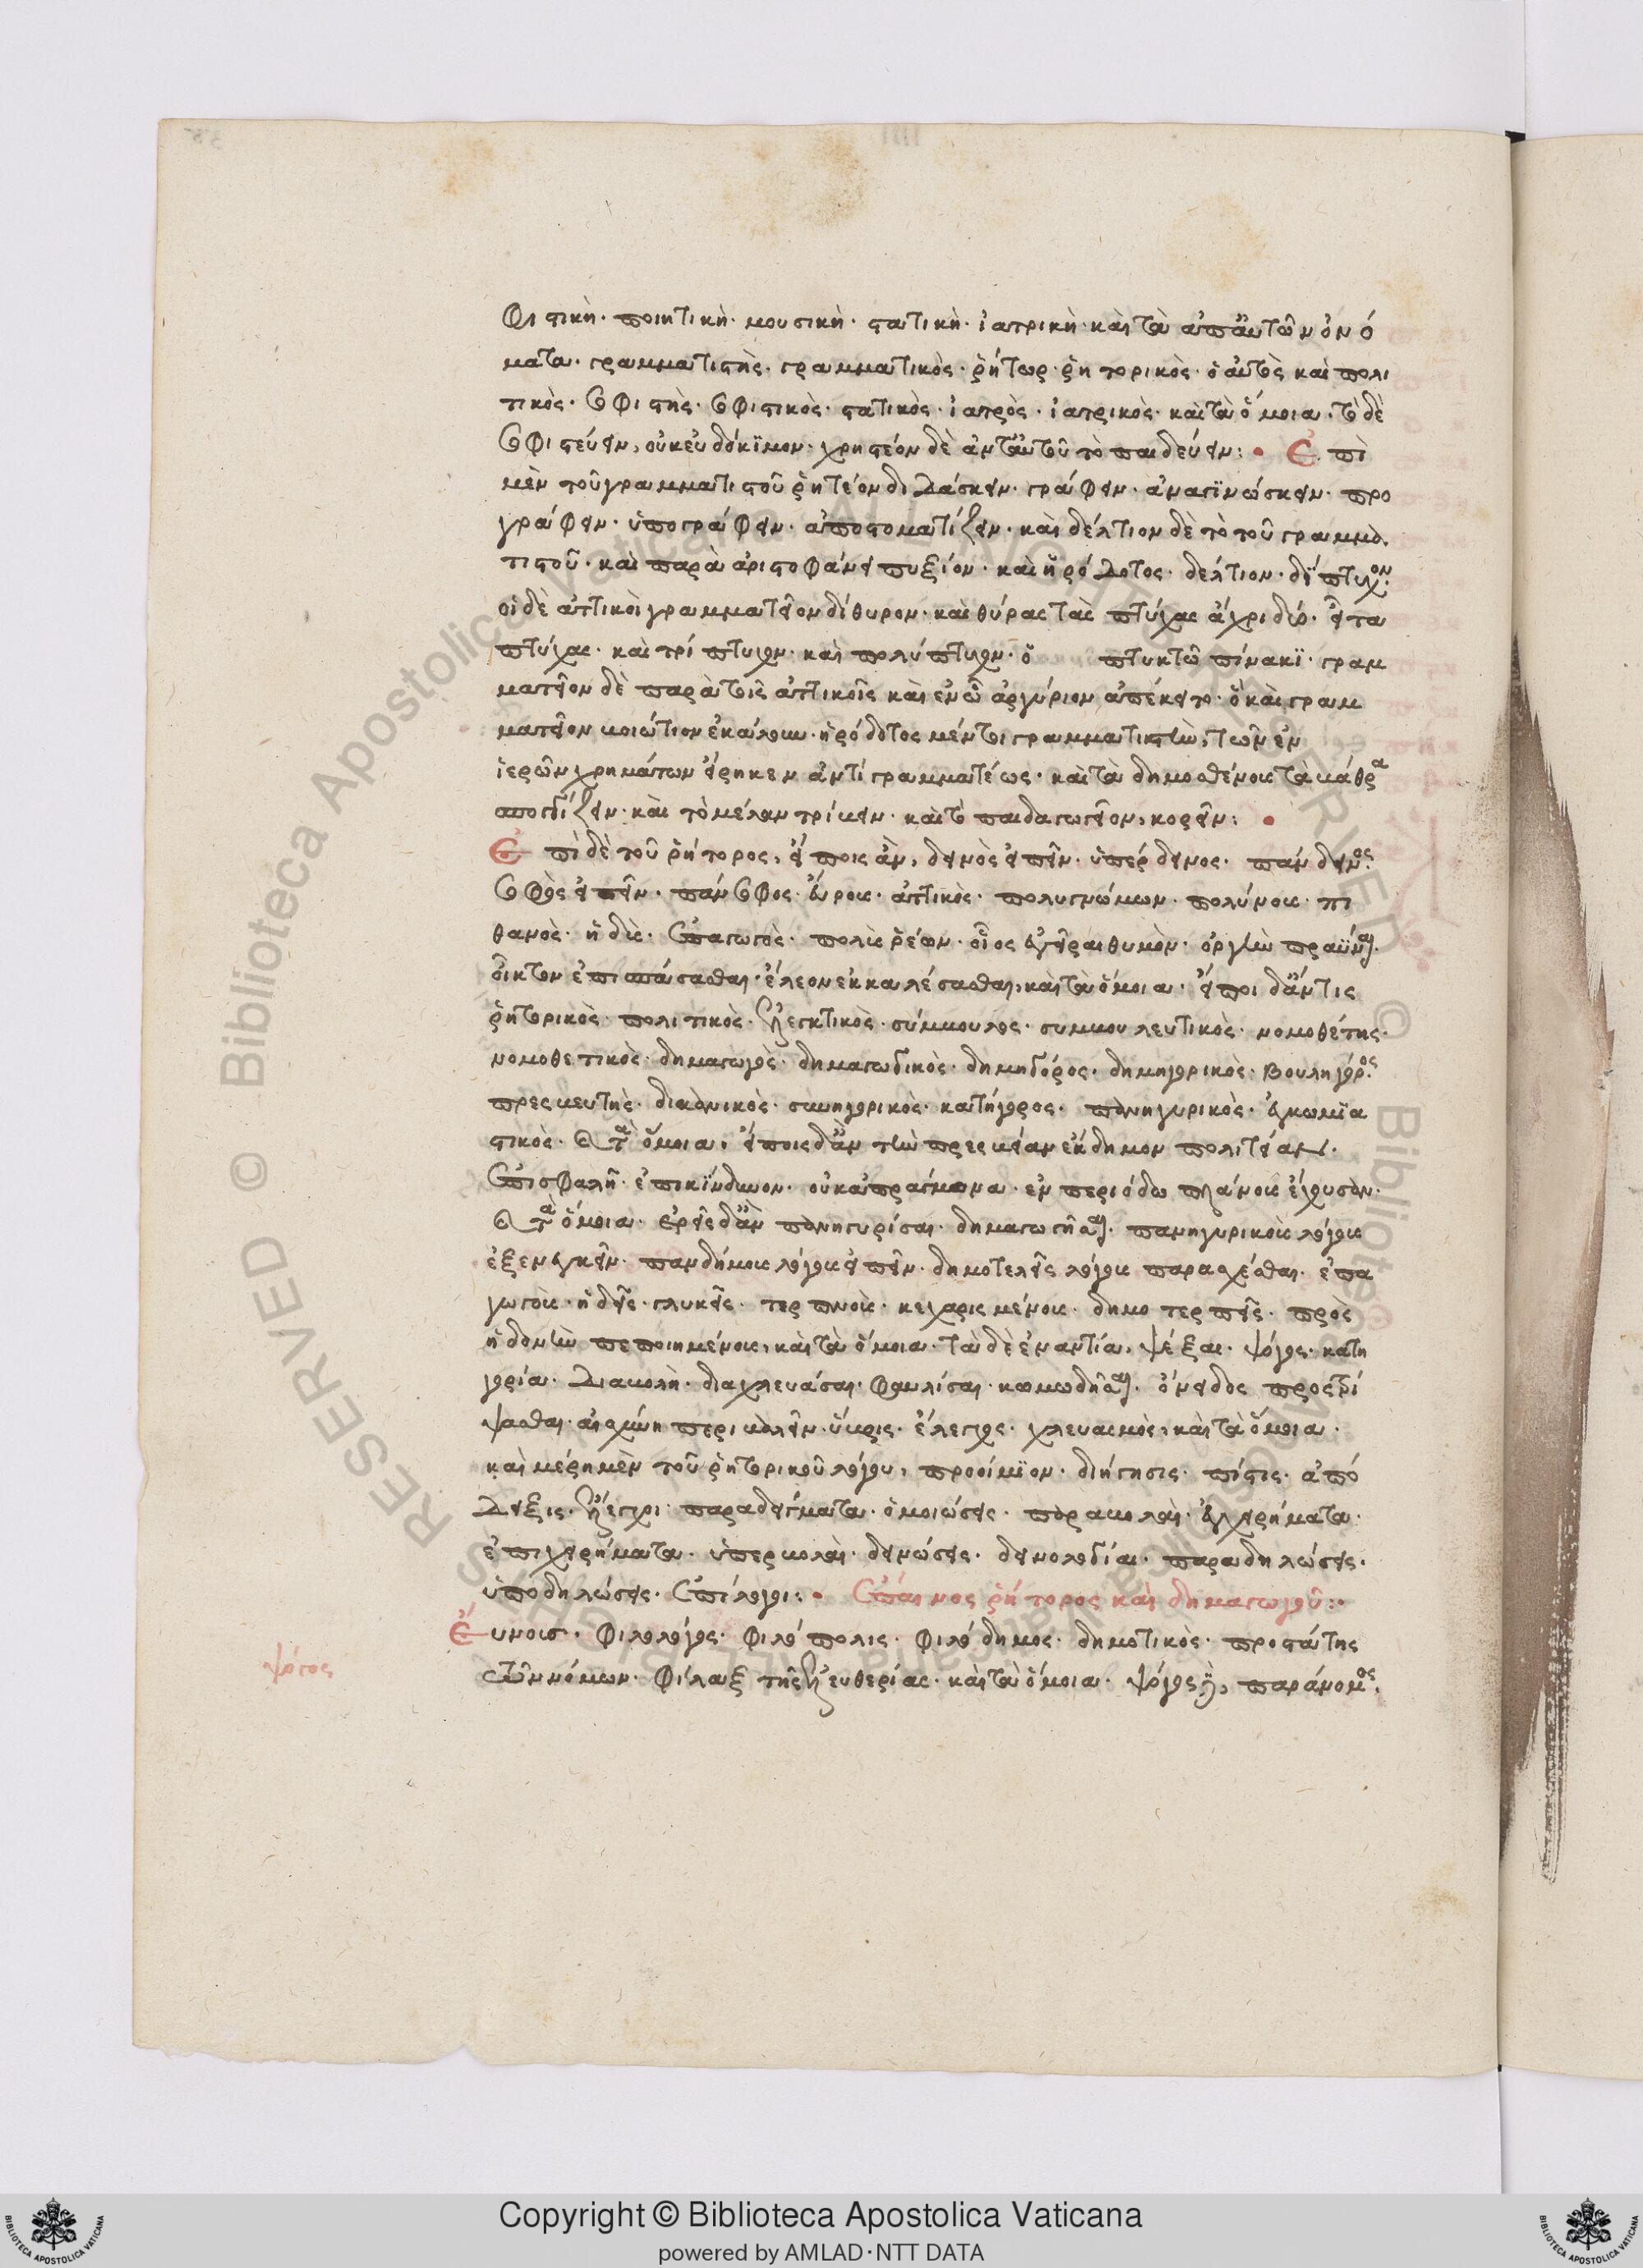 φιστικὴ· ποιητικὴ· μουσικὴ· στατικὴ· ἰατρικὴ· καὶ τὰ ἀπ' αὐτῶν ὀνό
ματα· γραμματιστὴς· γραμματικὸς· ῥήτωρ· ῥητορικὸς· ὁ αὐτὸς καὶ πολι
τικὸς· σοφιστὴς· σοφιστικὸς· στατικὸς· ἰατρὸς· ἰατρικὸς· καὶ τὰ ὅμοια· τὸ δὲ
σοφιστεύειν, οὐκ εὐδόκϊμον· χρηστέον δὲ ἀντ' αὐτοῦ τὸ παιδεύειν: • Ἐπὶ
μὲν τοῦ γραμματιστοῦ ῥητέον διδάσκειν· γράφειν· ἀναγϊνώσκειν· προ
γράφειν· ὑπογράφειν· ἀποστοματίζειν· καὶ δέλτιον δὲ τὸ τοῦ γραμμα
τιστοῦ· καὶ παρὰ ἀριστοφάνει πυξίον· καὶ ἡρόδοτος· δελτίον· δίπτυχον·
οἱ δὲ ἀττικοὶ γραμματεῖον δίθυρον· καὶ θύρας τὰς πτύχας ἄχρι δύο· εἶτα
πτύχας· καὶ τρίπτυχον· καὶ πολύπτυχον· ὅ πτυκτῷ πίνακϊ· γραμ
ματεῖον δὲ παρὰ τοῖς ἀττικοῖς καὶ ἐν ᾧ ἀργύριον ἀπέκειτο· ὃ καὶ γραμ
ματεῖον κιβώτιον ἐκάλουν· ἡρόδοτος μέντοι γραμματιστὴν, τῶν ἐν
ἱερῶν χρημάτων εἴρηκεν ἀντὶ γραμματέως· καὶ τὰ δημοσθένους τὰ βάθρα
σπογγίζειν· καὶ τὸ μέλαν τρίβειν· καὶ τὸ παιδαγωγεῖον, κορεῖν: •
Ἐπὶ δὲ τοῦ ῥήτορος, εἴποις ἂν, δεινὸς εἰπεῖν· ὑπέρδεινος· πάνδεινος·
σοφὸς εἰπεῖν· πάνσοφος· εὔρους· ἀττικὸς· πολυγνώμων· πολύνους· πι
θανὸς· ἡδὺς· ἐπαγωγὸς· πολὺς ῥέων· οἷος ἐγεῖραι θυμὸν· ὀργὴν πραῧναι·
οἶκτον ἐπισπάσασθαι· ἔλεον ἐκκαλέσασθαι, καὶ τὰ ὅμοια· εἴποι δ' ἄν τις
ῥητορικὸς· πολιτικὸς· ἐλεγκτικὸς· σύμβουλος· συμβουλευτικὸς· νομοθέτης·
νομοθετικὸς· δημαγωγὸς· δημαγωγικὸς· δημηγόρος· δημηγορικὸς· βουληγόρος·
πρεσβευτὴς· δικανικὸς· συνηγορικὸς· κατήγορος· πανηγυρικὸς· ἐγκωμϊα
στικὸς· καὶ τὰ ὅμοια· εἴποις δ' ἂν τὴν πρεσβείαν ἔκδημον πολιτείαν·
ἐπισφαλῆ· ἐπικίνδυνον· οὐκ ἀπράγμονα· ἐν περιόδῳ πλάνους ἔχουσαν·
καὶ τὰ ὅμοια· ἐρεῖς δ' ἂν πανηγυρίσαι· δημαγωγῆσαι· πανηγυρικοὺς λόγους
ἐξενεγκεῖν· πανδήμους λόγους εἰπεῖν· δημοτελεῖς λόγους παρασχέσθαι· ἐπα
γωγοὺς· ἡδεῖς· γλυκεῖς· τερπνοὺς· κεχαρισμένους· δημοτερπεῖς· πρὸς
ἡδονὴν πεποιημένους, καὶ τὰ ὅμοια· τὰ δὲ ἐναντία, ψέξαι· ψόγος· κατη
γορία· διαβολὴ· διαχλευάσαι· φαυλίσαι· κωμωδῆσαι· ὄνειδος προστρί
ψασθαι· αἰσχύνη περιβαλεῖν· ὕβρις· ἔλεγχος· χλευασμὸς, καὶ τὰ ὅμοια·
καὶ μέρη μὲν τοῦ ῥητορικοῦ λόγου, προοίμϊον· διήγησις· πίστις· ἀπό
δειξις· ἔλεγχοι· παραδείγματα· ὁμοιώσεις· παραβολαὶ· ἐγχειρήματα·
ἐπιχειρήματα· ὑπερβολαὶ· δεινώσεις· δεινολογίαι· παραδηλώσεις·
ὑποδηλώσεις· ἐπίλογοι: • Ἔπαινος ῥήτορος καὶ δημαγωγοῦ:·
Εὔνους· φιλολόγος· φιλόπολις· φιλόδημος· δημοτικὸς· προστάτης
τῶν νόμων· φύλαξ τῆς ἐλευθερίας· καὶ τὰ ὅμοια· ψόγος δὲ, παράνομος·
ψόγος
Copyright © Biblioteca Apostolica Vaticana
powered by AMLAD·NTT DATA